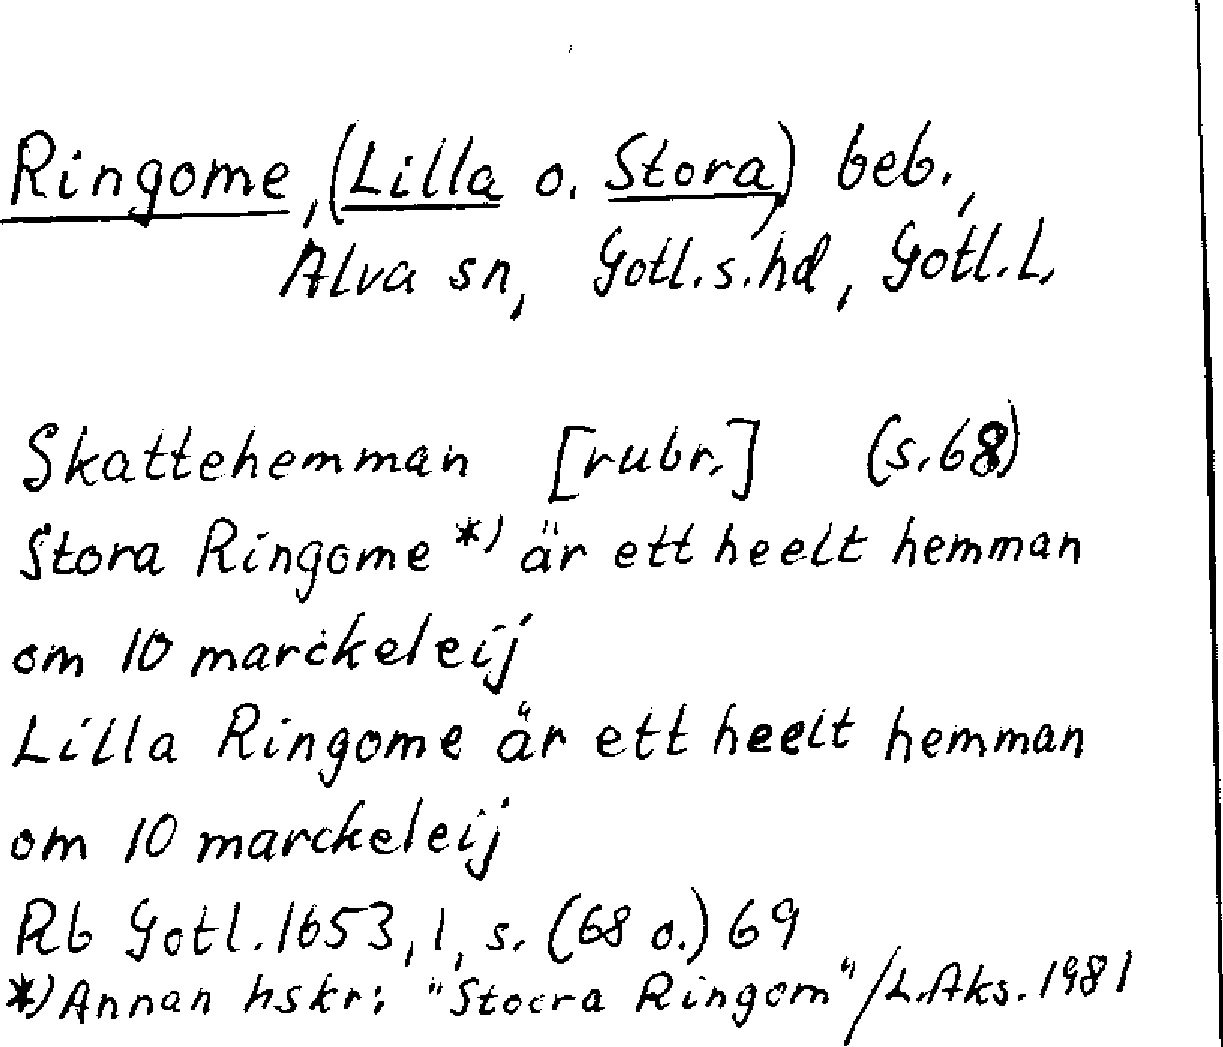 Ringome, (Lilla o. Stora) beb.,
Alva sn, Gotl.s.hd, Gotl.L.
Skattehemman [rubr.] (s.68)
Stora Ringome *) är ett heelt hemman
om 10 marckeleij
Lilla Ringome är ett heelt hemman
om 10 marckeleij
Rb Gotl. 1653, 1, s. (68 o.) 69
*) Annan hskr: "Stoera Ringom" / L.Aks. 1981